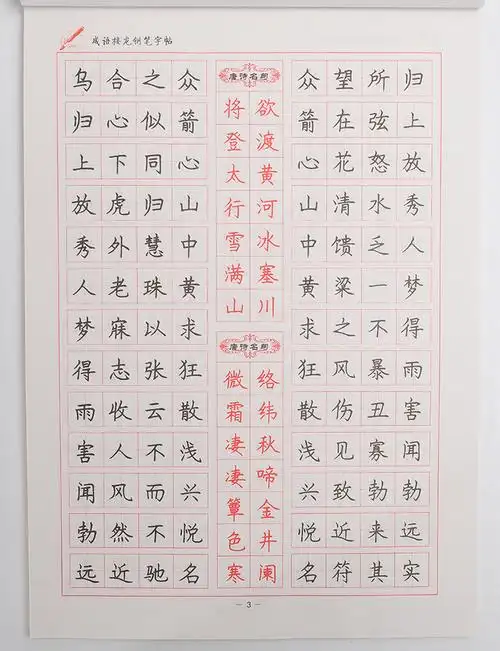 成语接龙钢笔字帖
乌合之众
众望所归
归心似箭
箭在弦上
上下同心
心花怒放
放虎归山
山清水秀
秀外慧中
中馈乏人
人老珠黄
黄粱一梦
梦寐以求
求之不得
得志张狂
狂风暴雨
雨收云散
散伤丑害
害人不浅
浅见寡闻
闻风而兴
兴致勃勃
勃然不悦
悦近来远
远近驰名
名符其实
唐诗名句
欲渡黄河冰塞川
将登太行雪满山
唐诗名句
络纬秋啼金井阑
微霜凄凄簟色寒
— 3 —